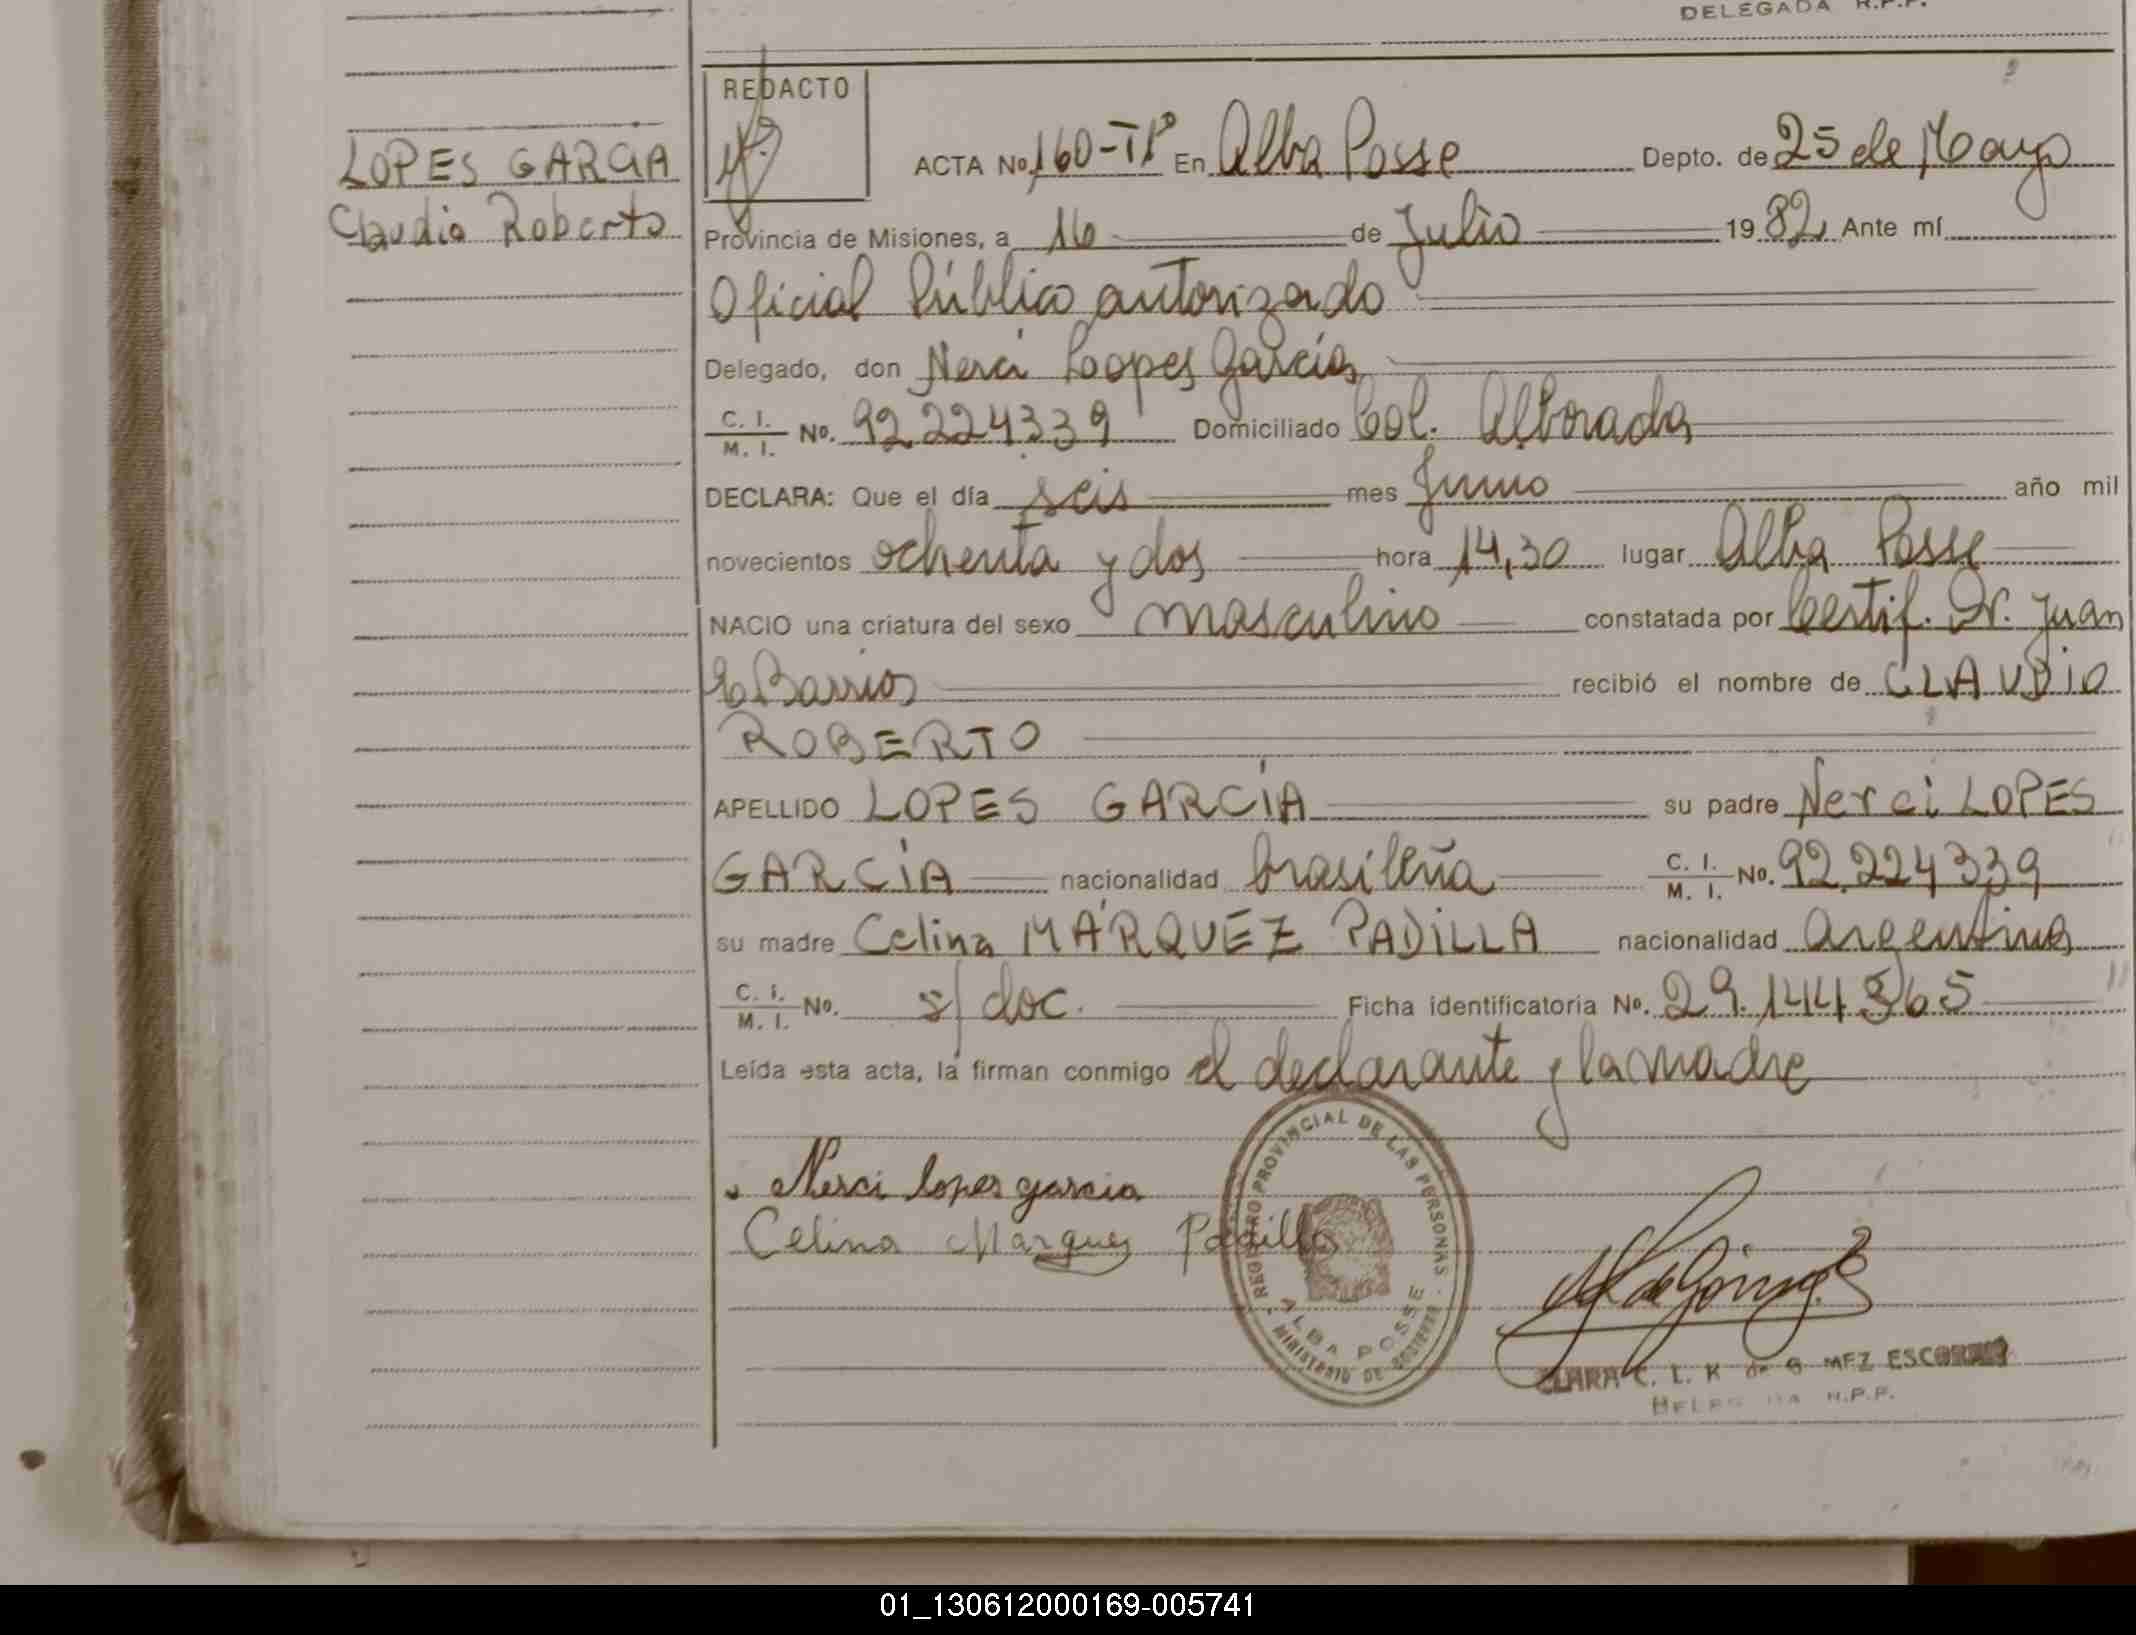 DELEGADA R.P.P.
REDACTO
ACTA No. 160-Tº En Alba Posse Depto. de 25 de Mayo
LOPES GARCIA
Claudio Roberto
Provincia de Misiones, a 16 de Julio 1982 Ante mí
Oficial Público autorizado
Delegado, don Nerci Loopes García
C. I. / M. I. No. 92.224339 Domiciliado Col. Alborada
DECLARA: Que el día seis mes Junio año mil
novecientos ochenta y dos hora 14,30 lugar Alba Posse
NACIO una criatura del sexo masculino constatada por Certif. Dr. Juan
C Barrios recibió el nombre de CLAUDIO
ROBERTO
APELLIDO LOPES GARCÍA su padre Nerci LOPES
GARCÍA nacionalidad brasileña C. I. / M. I. No. 92.224339
su madre Celina MÁRQUEZ PADILLA nacionalidad argentina
C. I. / M. I. No. s/doc. Ficha identificatoria No. 29.144365
Leída esta acta, la firman conmigo el declarante y la madre
Nerci lopes garcia
Celina Marques Padilla
REGISTRO PROVINCIAL DE LAS PERSONAS
ALBA POSSE
MINISTERIO DE GOBIERNO
CLARA C. L. K de G MEZ ESCOBAR
DELEGADA R.P.P.
01_130612000169-005741